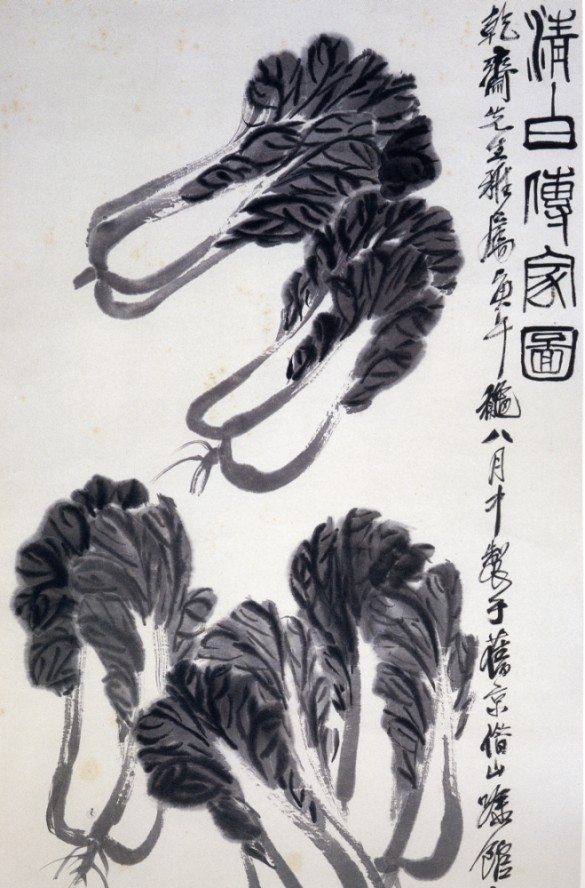 清白傳家圖
乾齋先生雅属庚午龝八月中製于舊京借山館